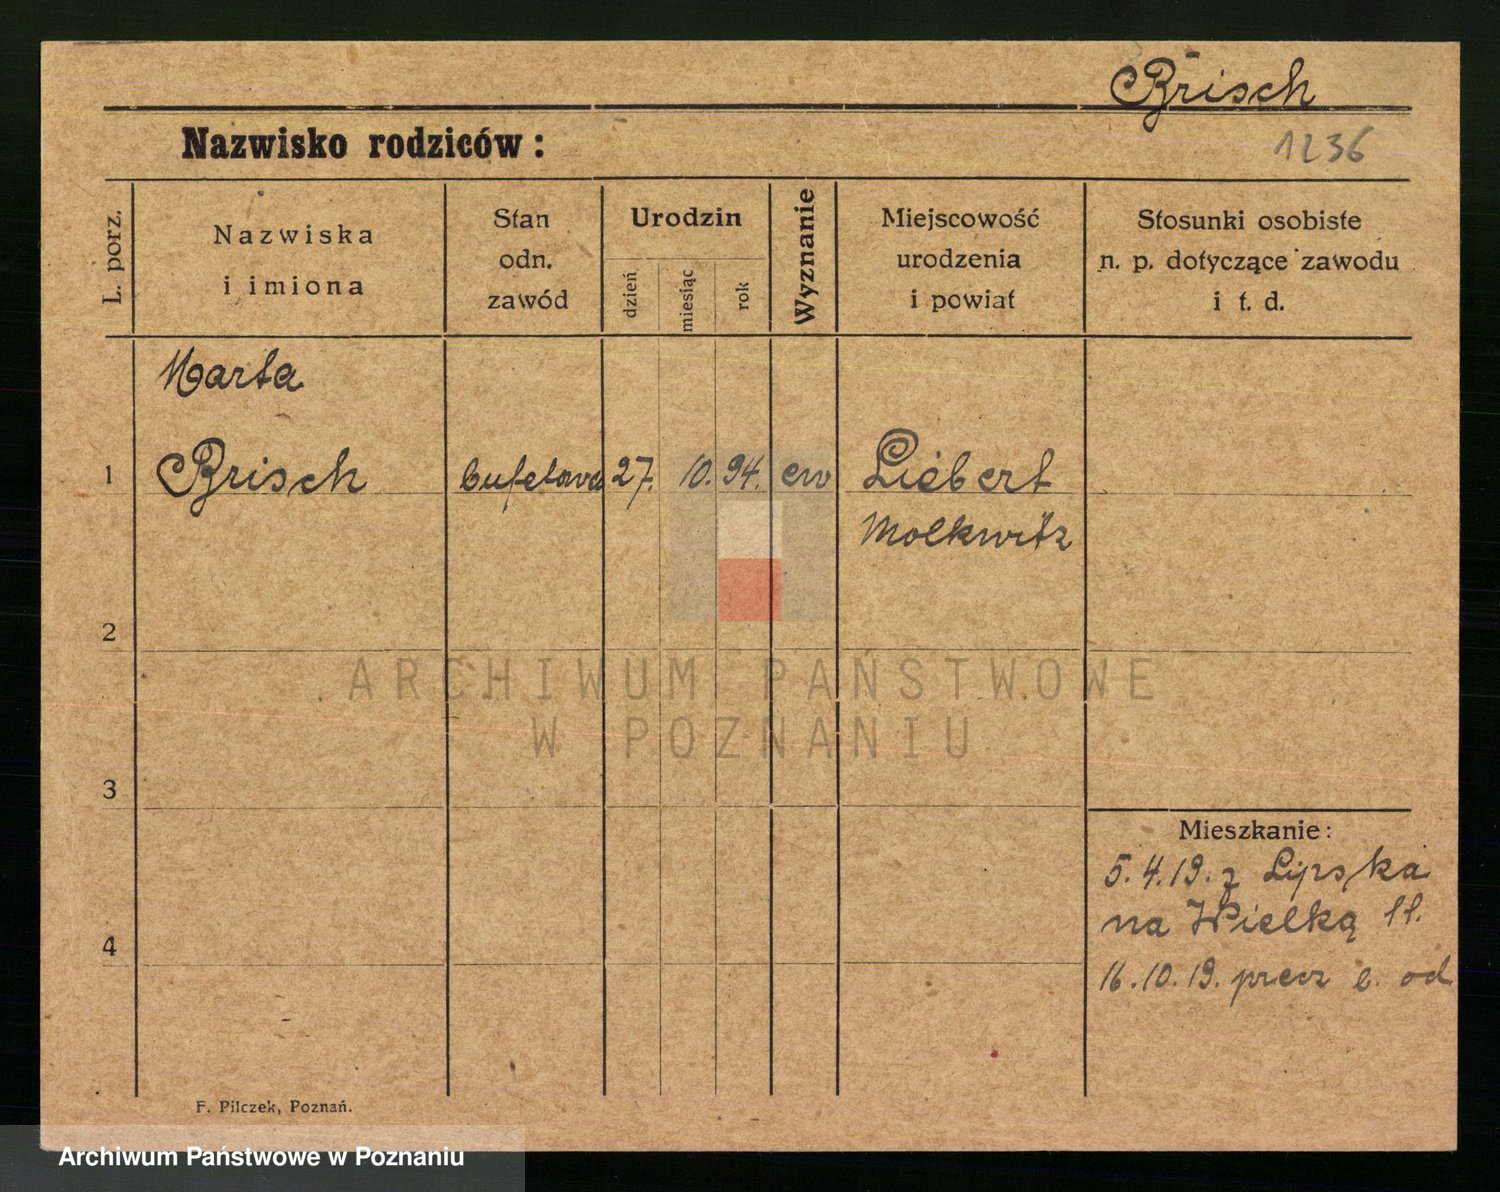 Brisch
Nazwisko rodziców:
1236
L. porz.
Nazwiska
i imiona
Stan
odn.
zawód
Urodzin
dzień
miesiąc
rok
Wyznanie
Miejscowość
urodzenia
i powiat
Stosunki osobiste
n. p. dotyczące zawodu
i t. d.
Marta
1 Brisch bufetowa 27. 10. 94. ew Liebert
Molkwitz
2
ARCHIWUM PAŃSTWOWE
W POZNANIU
3
Mieszkanie:
5.4.19. z Lipska
na Wielką 11.
4
16.10.19. precz b. od
F. Pilczek, Poznań.
Archiwum Państwowe w Poznaniu